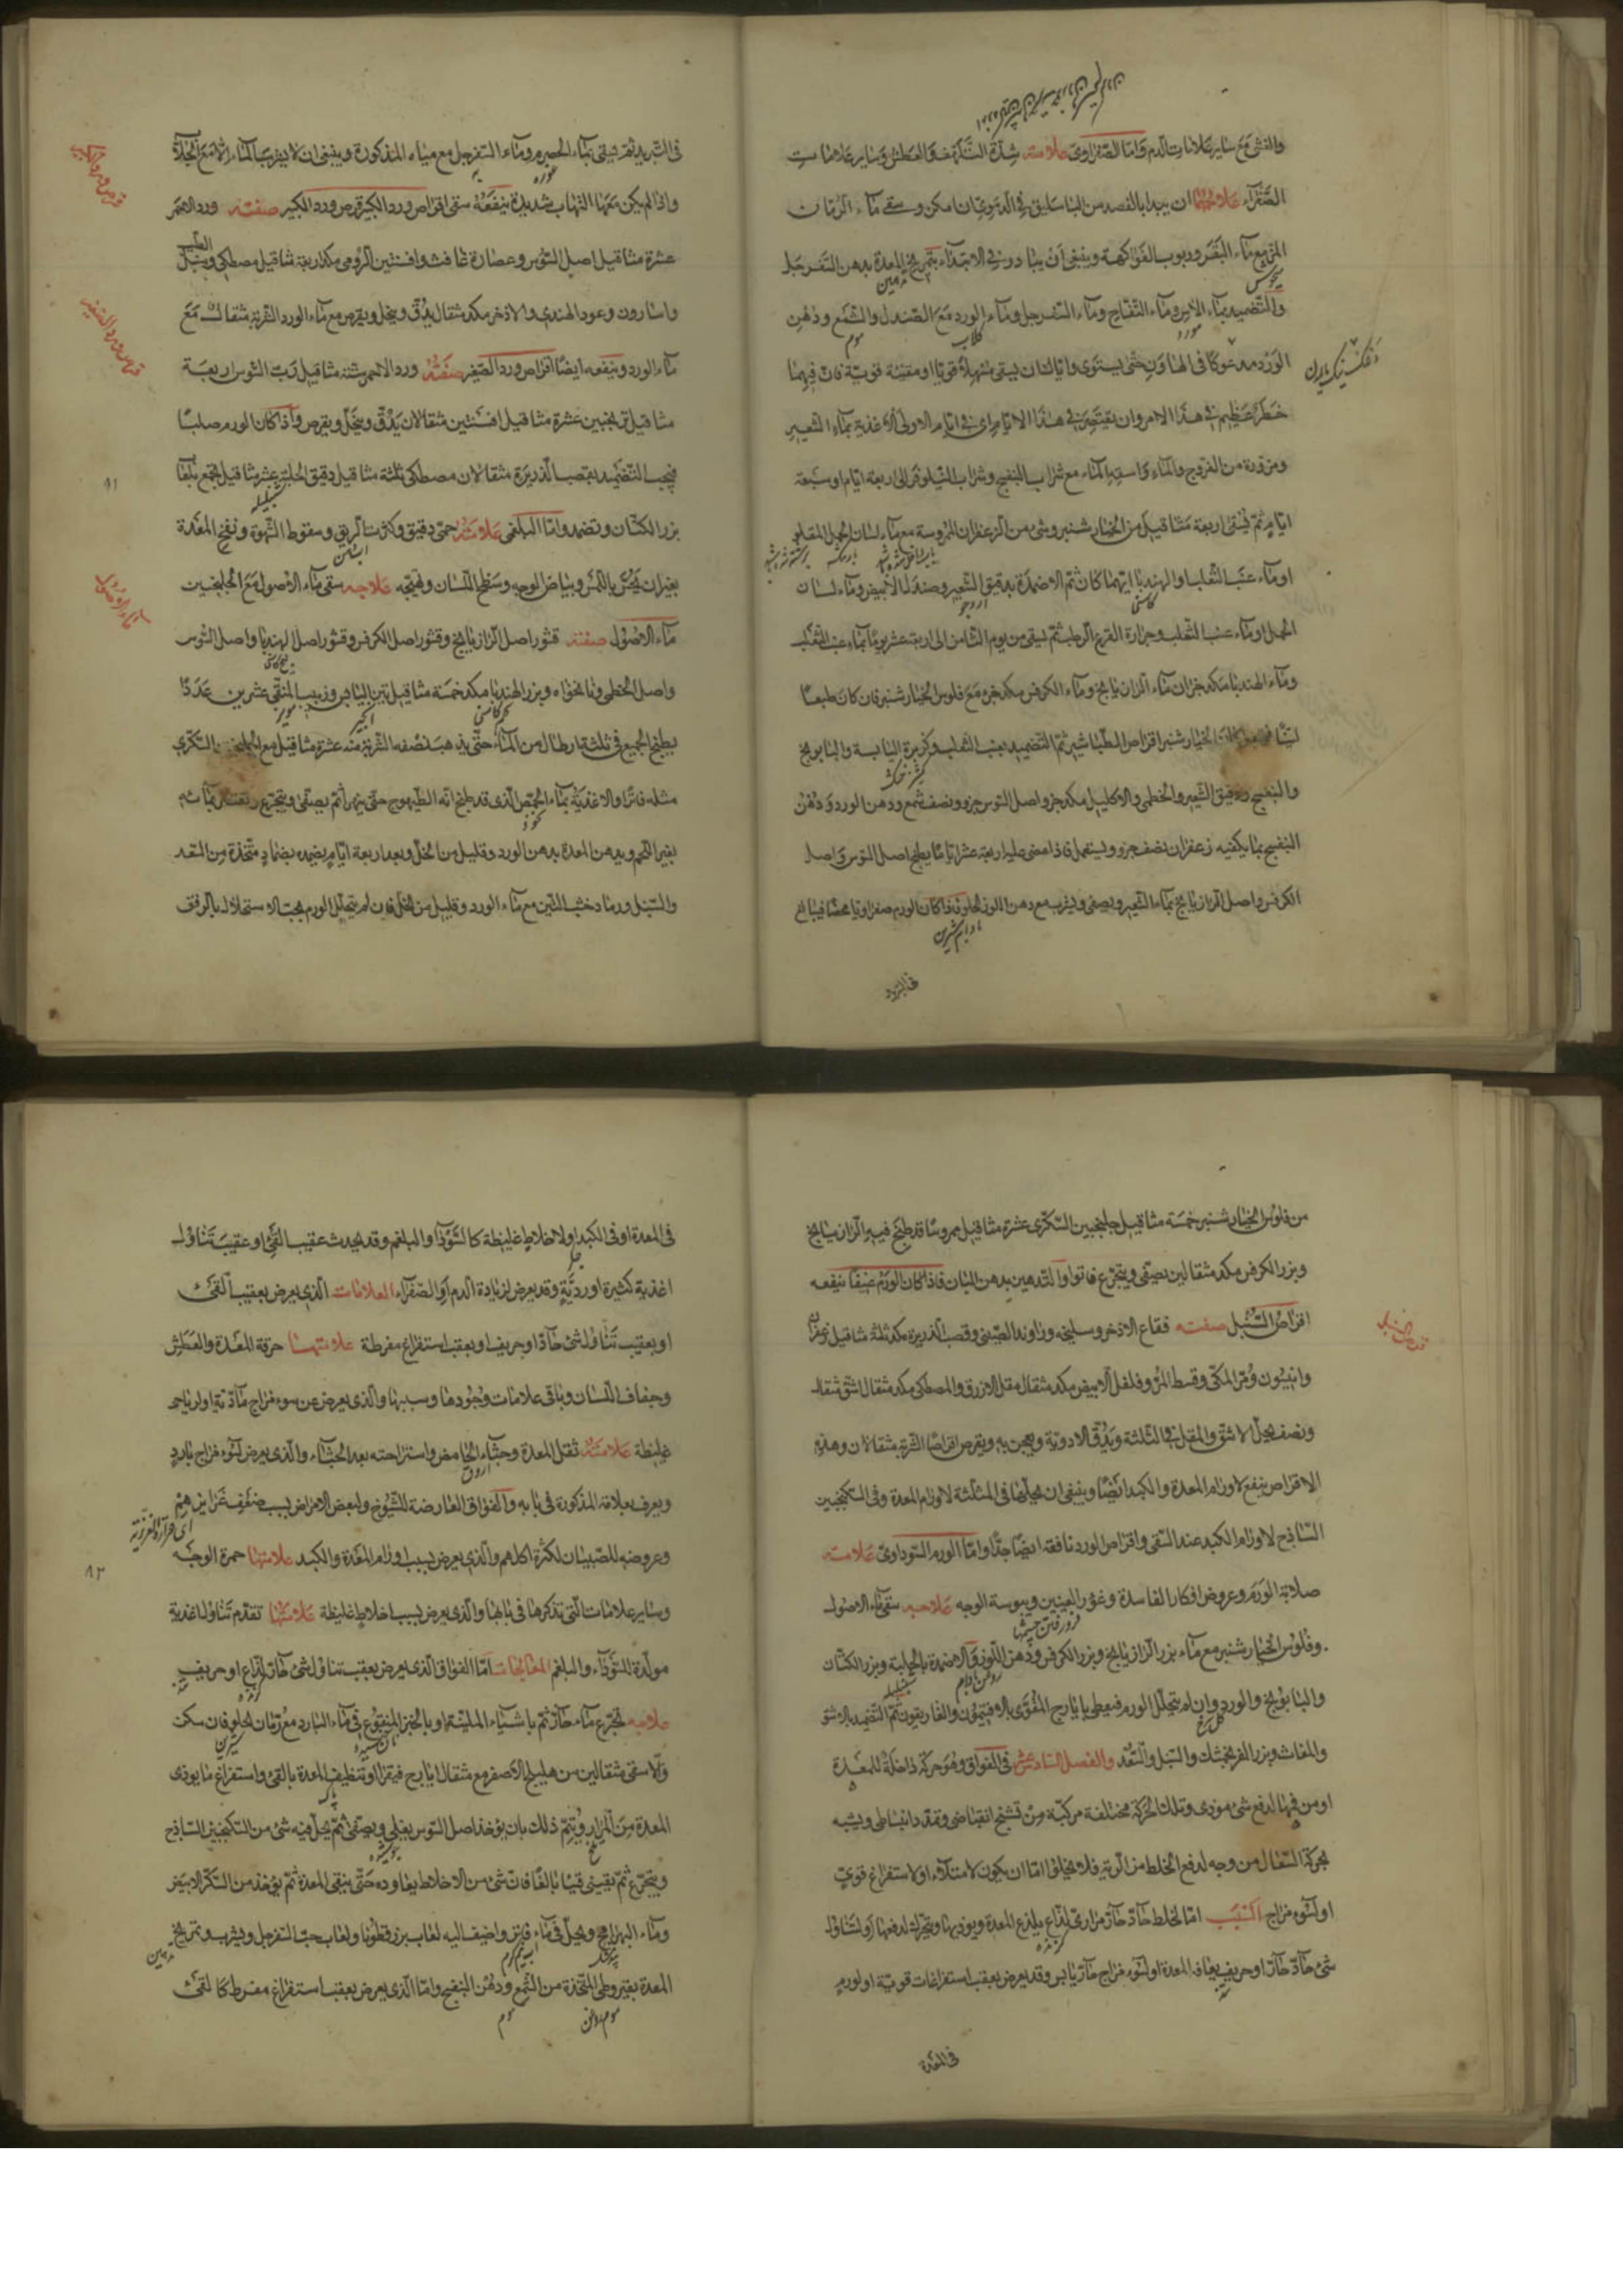 والغثى مع ساير علامات الدم واما الصفراوى علامته شدة التلهف والعطش وساير علامات
الصفراء علاجهما ان يبدا بالفصد من الباسليق فى الدموى ان امكن وسقى ماء الرمان
المز مع ماء البقر وربوب الفواكهة وينبغى ان يبادر فى الابتداء بتمريخ المعدة بدهن السفرجل
والتضميد بماء الاس وماء التفاح وماء السفرجل وماء الورد مع الصندل والشمع ودهن
الورد مدعوكا فى الهاون حتى يستوى واياك ان يسقى مسهلا قويا او مقيئة قوية فان فيهما
خطر عظيم فى هذا الامر وان يقتصر فى هذا الايام اى فى ايام الاولى الاغذية بماء الشعير
ومزورة من الفروج والماء واسقه الماء مع شراب البنفسج وشراب النيلوفر الى اربعة ايام او سبعة
ايام ثم يسقى اربعة مثاقيل من الخيار شنبر وشئ من الزعفران المروسة مع ماء لسان الحمل المقلو
او ماء عنب الثعلب او الهندبا ايهما كان ثم الاضمدة بدقيق الشعير وصندل الابيض وماء لسان
الحمل او ماء عنب الثعلب وجرارة القرع الرطب ثم يسقى من يوم الثامن الى اربعة عشر يوما بماء عنب الثعلب
وماء الهندبا مكد جزان ماء الرازيانج وماء الكرفس مكد جزء مع فلوس الخيار شنبر فان كان طبعا
لينا الخيار شنبر اقراص الطباشير ثم التضميد بعنب الثعلب وكزبرة اليابسة والبابونج
والبنفسج ودقيق الشعير والخطمى والاكليل مكد جزو اصل السوس جزو ونصف شمع ودهن الورد ودهن
البنفسج بما يكفيه زعفران نصف جزو ويستعمل فاذا مضى عليه اربعة عشر اياما يطبخ اصل السوس واصل
الكرفس واصل الرازيانج بماء الشعير ويصفى ويشرب مع دهن اللوز الحلو فاذا كان الورم صفراويا محضا فيبالغ
بادام شيرين
فى التبريد
فى التبريد ثم يسقى بماء الحصرم وماء السفرجل مع مياه المذكورة وينبغى ان لا يشرب الماء الا مع الجلاب
واذا لم يكن معها التهاب شديدة ينفعه سقى اقراص ورد الكبير قرص ورد الكبير صفته ورد الاحمر
عشرة مثاقيل اصل السوس وعصارة غافث وافسنتين الرومى مكد اربعة مثاقيل مصطكى وسنبل الطيب
واسارون وعود الهندى والاذخر مكد مثقال يدق وينخل ويقرص مع ماء الورد الشربة مثقال مع
ماء الورد وينفعه ايضا اقراص ورد الصغير صفته ورد الاحمر ستة مثاقيل رب السوس اربعة
مثاقيل ترنجبين عشرة مثاقيل افسنتين مثقالان يدق وينخل ويقرص واذا كان الورم صلبا
فيجب التضميد بقصب الذريرة مثقالان مصطكى ثلثة مثاقيل دقيق الحلبة عشر مثاقيل يجمع بلعاب
بزر الكتان وتضمد واما البلغمى علامته حمى دقيق وكثرت الريق وسقوط الشهوة ونفخ المعدة
بغير ان يحس باللمس وبياض الوجه وسطح اللسان وتهيجه علاجه سقى ماء الاصول مع الجلنجبين
ماء الاصول صفته قشور اصل الرازيانج وقشور اصل الكرفس وقشور اصل الهندبا واصل السوس
واصل الخطمى ونانخواه وبزر الهندبا مكد خمسة مثاقيل تين اليابس وزبيب المنقى عشرين عددا
يطبخ الجميع فى ثلثة ارطال من الماء حتى يذهب نصفه الشربة منه عشرة مثاقيل مع الجلنجبين السكرى
مثله فاترا والاغذية بماء الحمص الذى قد طبخ انه الطيهوج حتى يتهرأ ثم يصفى ويتجرع
بغير اللحم ويدهن المعدة بدهن الورد وقليل من الخل وبعد اربعة ايام يضمد بضماد متخذة من السعد
والسنبل ورماد خشب التين مع ماء الورد وقليل من الخل فان لم يتحلل الورم يجب الاستحلال بالرفق
قرص ورد الكبير
قرص ورد الصغير
ماء الاصول
٨١
من فلوس الخيار شنبر خمسة مثاقيل جلنجبين السكرى عشرة مثاقيل مروسا قد طبخ فيه الرازيانج
وبزر الكرفس مكد مثقالين يصفى ويتجرع فاترا والتدهين بدهن البان فاذا كان الورم عنيفا ينفعه
اقراص السنبل صفته فقاع الاذخر وسليخه وزراوند الصينى وقصب الذريرة مكد ثلثة مثاقيل زعفران
وانيسون ومر المكى وقسط المر وفلفل الابيض مكد مثقال مقل الازرق والمصطكى مكد مثقال اشق مثقال
ونصف يحل الاشق والمقل فى المثلثة ويدق الادوية ويعجن به ويقرص اقراصا الشربة مثقالان وهذه
الاقراص ينفع لاورام المعدة والكبد ايضا وينبغى ان يحلها فى المثلثة لاورام المعدة وفى السكنجبين
الساذج لاورام الكبد عند السقى واقراص الورد نافعة ايضا جدا واما الورم السوداوى علامته
صلابة الورم وعروض افكار الفاسدة وغؤر العينين ويبوسة الوجه علاجه سقى ماء الاصول
وفلوس الخيار شنبر مع ماء بزر الرازيانج وبزر الكرفس ودهن اللوز والاضمدة بالحلبة وبزر الكتان
والبابونج والورد وان لم يتحلل الورم فيعطى بايارج المقوى بالافتيمون والغاريقون ثم التضميد بالاشق
والمغاث وبزر الفرنجمشك والسنبل والسعد والفصل السادعشر فى الفواق وهو حركة داخلة للمعدة
او من فمها لدفع شئ موذى وتلك الحركة مختلفة مركبة من تشنج انقباضى وتمدد انبساطى ويشبه
بحركة السعال من وجه لدفع الخلط من الرية فلا يخلوا اما ان يكون لامتلاء او لاستفراغ قوى
او لسوء مزاج السبب اما لخلط حاد حار مرارى لذاع يلذع المعدة ويوذيها ويتحرك لدفعها او لتناول
شئ حاد حار او حريف يعاف المعدة او لسوء مزاج حار يابس وقد يعرض بعقب استفراغات قوية او لورم
فى المعدة
فى المعدة او فى الكبد او لاخلاط غليظة كالسوداء والبلغم وقد يحدث عقيب القئ او عقيب تناول
اغذية كثيرة او ردية وقد يعرض لزيادة الدم او الصفراء العلامات الذى يعرض بعقيب القئ
او بعقيب تناول شئ حاد او حريف او بعقب استفراغ مفرطة علامتها حرقة المعدة والعطش
وجفاف اللسان وباقى علامات وجودها وسببها والذى يعرض عن سوء مزاج مادة او لرياح
غليظة علامته ثقل المعدة وجثاء الحامض واستراحته بعد الجثاء والذى يعرض لسوء مزاج بارد
ويعرف بعلامة المذكورة فى بابه والفواق العارضة للشيوخ ولبعض الامراض بسبب ضعف غرايزهم
وعروضه للصبيان لكثرة اكلهم والذى يعرض بسبب اورام المعدة والكبد علامتها حمرة الوجه
وساير علامات التى نذكرها فى بابها والذى يعرض بسبب اخلاط غليظة علامتها تقدم تناول اغذية
مولدة للسوداء والبلغم المعالجات اما الفواق الذى يعرض بعقب تناول شئ حار لذاع او حريف
علاجه تجرع ماء حار ثم باشياء الملينة او بالخبز المنقوع فى ماء البارد مع رمان الحلو فان سكن
والا سقى مثقالين من هليلج الاصفر مع مثقال ايارج فيقرا او تنظيف المعدة بالقئ واستفراغ ما يوذى
المعدة من المرار ويتم ذلك بان يوخذ اصل السوس يغلى ويصفى ثم يحل فيه شئ من السكنجبين الساذج
ويتجرع ثم يقيئ قيئا بالغا فان شئ من الاخلاط يعاوده حتى ينقى المعدة ثم يوخذ من السكر الابيض
وماء البهرامج ويحل فى ماء فاتر واضيف اليه لعاب بزر قطونا ولعاب حب السفرجل ويشرب وتمريخ
المعدة بقيروطى المتخذة من الشمع ودهن البنفسج واما الذى يعرض بعقب استفراغ مفرط كالقئ
موم روغن
موم
٨٢